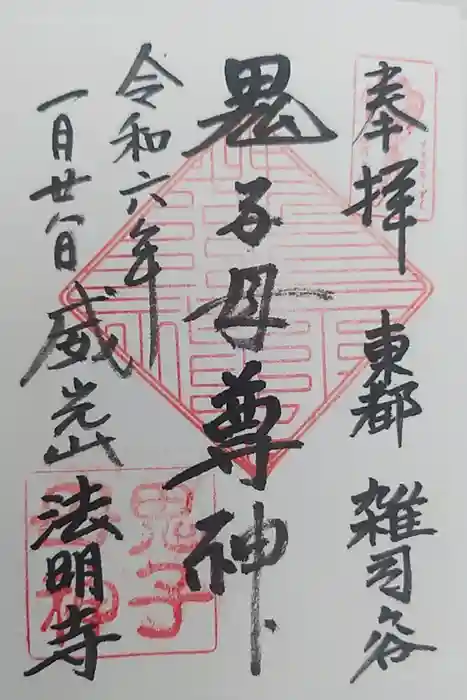 奉拝 東都 雑司谷
鬼子母尊神
令和六年
一月廿八日 威光山 法明寺
鬼子
母神